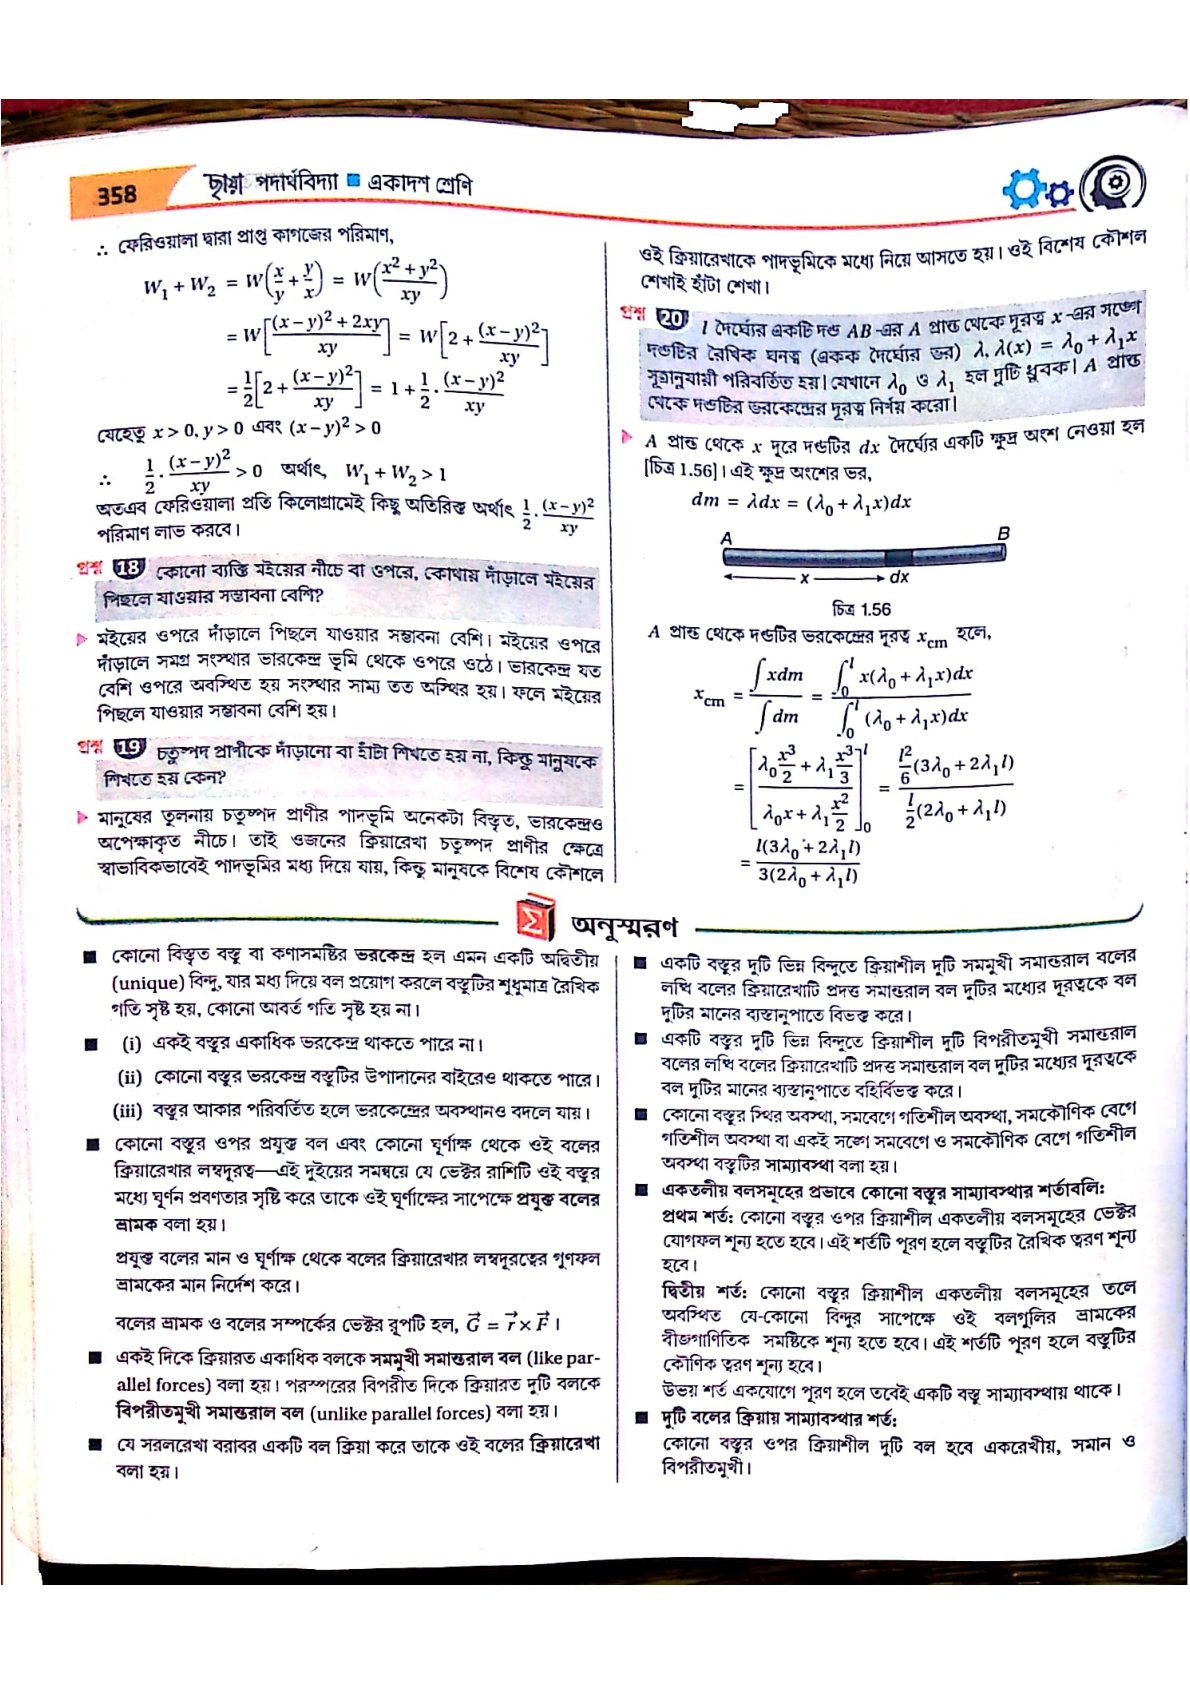 358
ছায়া পদার্থবিদ্যা ■ একাদশ শ্রেণি
∴ ফেরিওয়ালা দ্বারা প্রাপ্ত কাগজের পরিমাণ,
W₁ + W₂ = W(x/y + y/x) = W((x² + y²)/xy)
= W[((x − y)² + 2xy)/xy] = W[2 + (x − y)²/xy]
= 1/2[2 + (x − y)²/xy] = 1 + 1/2 · (x − y)²/xy
যেহেতু x > 0, y > 0 এবং (x − y)² > 0
∴ 1/2 · (x − y)²/xy > 0 অর্থাৎ, W₁ + W₂ > 1
অতএব ফেরিওয়ালা প্রতি কিলোগ্রামেই কিছু অতিরিক্ত অর্থাৎ 1/2 · (x − y)²/xy
পরিমাণ লাভ করবে।
প্রশ্ন 18 কোনো ব্যক্তি মইয়ের নীচে বা ওপরে, কোথায় দাঁড়ালে মইয়ের
পিছলে যাওয়ার সম্ভাবনা বেশি?
মইয়ের ওপরে দাঁড়ালে পিছলে যাওয়ার সম্ভাবনা বেশি। মইয়ের ওপরে
দাঁড়ালে সমগ্র সংস্থার ভারকেন্দ্র ভূমি থেকে ওপরে ওঠে। ভারকেন্দ্র যত
বেশি ওপরে অবস্থিত হয় সংস্থার সাম্য তত অস্থির হয়। ফলে মইয়ের
পিছলে যাওয়ার সম্ভাবনা বেশি হয়।
প্রশ্ন 19 চতুষ্পদ প্রাণীকে দাঁড়ানো বা হাঁটা শিখতে হয় না, কিন্তু মানুষকে
শিখতে হয় কেন?
মানুষের তুলনায় চতুষ্পদ প্রাণীর পাদভূমি অনেকটা বিস্তৃত, ভারকেন্দ্রও
অপেক্ষাকৃত নীচে। তাই ওজনের ক্রিয়ারেখা চতুষ্পদ প্রাণীর ক্ষেত্রে
স্বাভাবিকভাবেই পাদভূমির মধ্য দিয়ে যায়, কিন্তু মানুষকে বিশেষ কৌশলে
ওই ক্রিয়ারেখাকে পাদভূমিকে মধ্যে নিয়ে আসতে হয়। ওই বিশেষ কৌশল
শেখাই হাঁটা শেখা।
প্রশ্ন 20 l দৈর্ঘ্যের একটি দণ্ড AB-এর A প্রান্ত থেকে দূরত্ব x-এর সঙ্গে
দণ্ডটির রৈখিক ঘনত্ব (একক দৈর্ঘ্যের ভর) λ, λ(x) = λ₀ + λ₁x
সূত্রানুযায়ী পরিবর্তিত হয়। যেখানে λ₀ ও λ₁ হল দুটি ধ্রুবক। A প্রান্ত
থেকে দণ্ডটির ভরকেন্দ্রের দূরত্ব নির্ণয় করো।
A প্রান্ত থেকে x দূরে দণ্ডটির dx দৈর্ঘ্যের একটি ক্ষুদ্র অংশ নেওয়া হল
[চিত্র 1.56]। এই ক্ষুদ্র অংশের ভর,
dm = λdx = (λ₀ + λ₁x)dx
A B
x dx
চিত্র 1.56
A প্রান্ত থেকে দণ্ডটির ভরকেন্দ্রের দূরত্ব x_cm হলে,
x_cm = ∫xdm / ∫dm = ∫₀ˡ x(λ₀ + λ₁x)dx / ∫₀ˡ (λ₀ + λ₁x)dx
= [(λ₀ x³/2 + λ₁ x³/3) / (λ₀x + λ₁ x²/2)]₀ˡ = (l²/6 (3λ₀ + 2λ₁l)) / (l/2 (2λ₀ + λ₁l))
= l(3λ₀ + 2λ₁l) / 3(2λ₀ + λ₁l)
Σ অনুস্মরণ
■ কোনো বিস্তৃত বস্তু বা কণাসমষ্টির ভরকেন্দ্র হল এমন একটি অদ্বিতীয়
(unique) বিন্দু, যার মধ্য দিয়ে বল প্রয়োগ করলে বস্তুটির শুধুমাত্র রৈখিক
গতি সৃষ্ট হয়, কোনো আবর্ত গতি সৃষ্ট হয় না।
■ (i) একই বস্তুর একাধিক ভরকেন্দ্র থাকতে পারে না।
(ii) কোনো বস্তুর ভরকেন্দ্র বস্তুটির উপাদানের বাইরেও থাকতে পারে।
(iii) বস্তুর আকার পরিবর্তিত হলে ভরকেন্দ্রের অবস্থানও বদলে যায়।
■ কোনো বস্তুর ওপর প্রযুক্ত বল এবং কোনো ঘূর্ণাক্ষ থেকে ওই বলের
ক্রিয়ারেখার লম্বদূরত্ব—এই দুইয়ের সমন্বয়ে যে ভেক্টর রাশিটি ওই বস্তুর
মধ্যে ঘূর্ণন প্রবণতার সৃষ্টি করে তাকে ওই ঘূর্ণাক্ষের সাপেক্ষে প্রযুক্ত বলের
ভ্রামক বলা হয়।
প্রযুক্ত বলের মান ও ঘূর্ণাক্ষ থেকে বলের ক্রিয়ারেখার লম্বদূরত্বের গুণফল
ভ্রামকের মান নির্দেশ করে।
বলের ভ্রামক ও বলের সম্পর্কের ভেক্টর রূপটি হল, G⃗ = r⃗ × F⃗ ।
■ একই দিকে ক্রিয়ারত একাধিক বলকে সমমুখী সমান্তরাল বল (like par-
allel forces) বলা হয়। পরস্পরের বিপরীত দিকে ক্রিয়ারত দুটি বলকে
বিপরীতমুখী সমান্তরাল বল (unlike parallel forces) বলা হয়।
■ যে সরলরেখা বরাবর একটি বল ক্রিয়া করে তাকে ওই বলের ক্রিয়ারেখা
বলা হয়।
■ একটি বস্তুর দুটি ভিন্ন বিন্দুতে ক্রিয়াশীল দুটি সমমুখী সমান্তরাল বলের
লব্ধি বলের ক্রিয়ারেখাটি প্রদত্ত সমান্তরাল বল দুটির মধ্যের দূরত্বকে বল
দুটির মানের ব্যস্তানুপাতে বিভক্ত করে।
■ একটি বস্তুর দুটি ভিন্ন বিন্দুতে ক্রিয়াশীল দুটি বিপরীতমুখী সমান্তরাল
বলের লব্ধি বলের ক্রিয়ারেখাটি প্রদত্ত সমান্তরাল বল দুটির মধ্যের দূরত্বকে
বল দুটির মানের ব্যস্তানুপাতে বহির্বিভক্ত করে।
■ কোনো বস্তুর স্থির অবস্থা, সমবেগে গতিশীল অবস্থা, সমকৌণিক বেগে
গতিশীল অবস্থা বা একই সঙ্গে সমবেগে ও সমকৌণিক বেগে গতিশীল
অবস্থা বস্তুটির সাম্যাবস্থা বলা হয়।
■ একতলীয় বলসমূহের প্রভাবে কোনো বস্তুর সাম্যাবস্থার শর্তাবলি:
প্রথম শর্ত: কোনো বস্তুর ওপর ক্রিয়াশীল একতলীয় বলসমূহের ভেক্টর
যোগফল শূন্য হতে হবে। এই শর্তটি পূরণ হলে বস্তুটির রৈখিক ত্বরণ শূন্য
হবে।
দ্বিতীয় শর্ত: কোনো বস্তুর ক্রিয়াশীল একতলীয় বলসমূহের তলে
অবস্থিত যে-কোনো বিন্দুর সাপেক্ষে ওই বলগুলির ভ্রামকের
বীজগাণিতিক সমষ্টিকে শূন্য হতে হবে। এই শর্তটি পূরণ হলে বস্তুটির
কৌণিক ত্বরণ শূন্য হবে।
উভয় শর্ত একযোগে পূরণ হলে তবেই একটি বস্তু সাম্যাবস্থায় থাকে।
■ দুটি বলের ক্রিয়ায় সাম্যাবস্থার শর্ত:
কোনো বস্তুর ওপর ক্রিয়াশীল দুটি বল হবে একরেখীয়, সমান ও
বিপরীতমুখী।